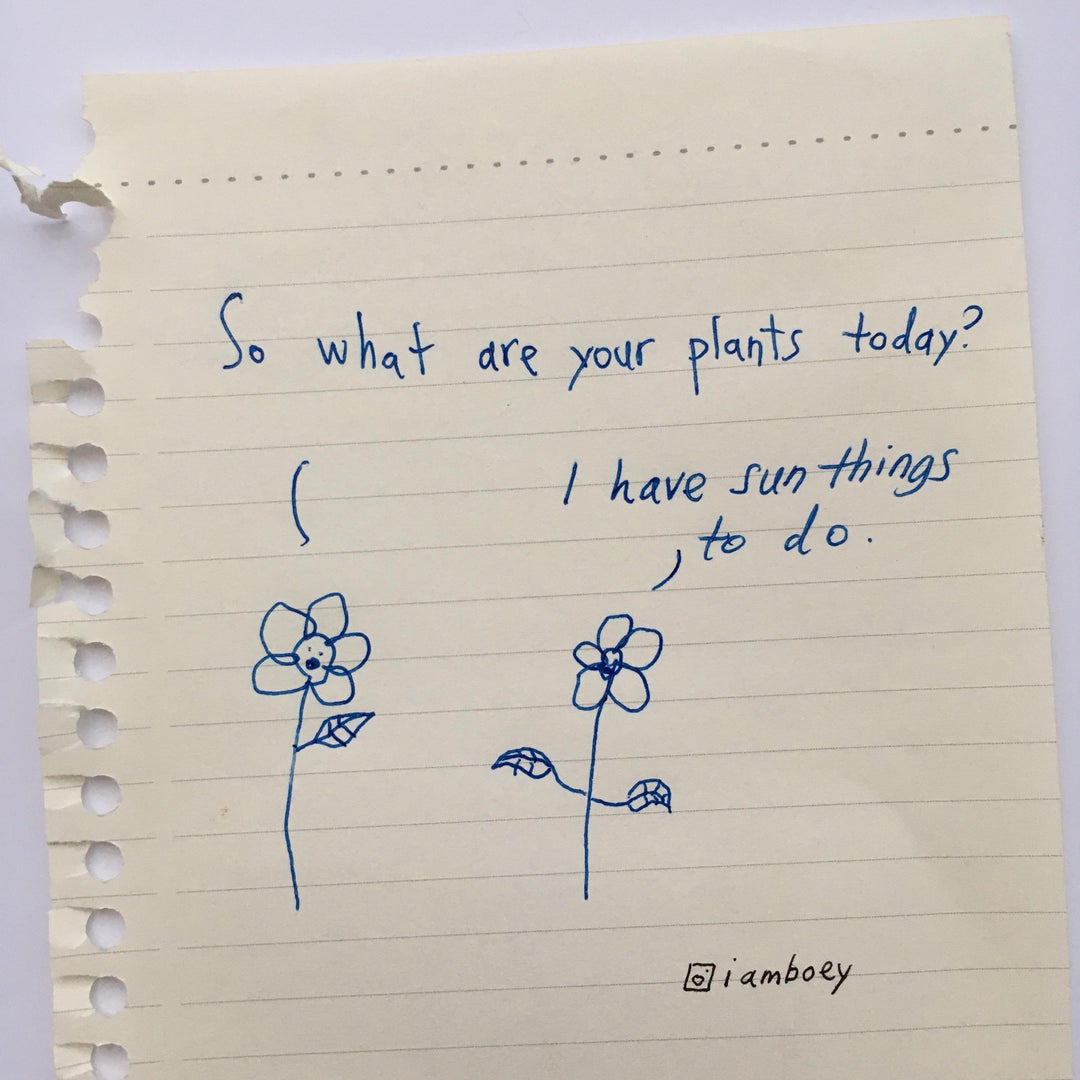 So what are your plants today?
I have sun things
to do.
iamboey